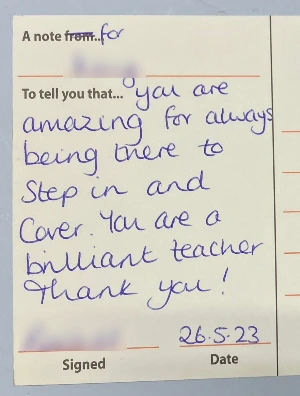 A note from... for
To tell you that... you are
amazing for always
being there to
Step in and
Cover. You are a
brilliant teacher
Thank you!
26.5.23
Signed Date